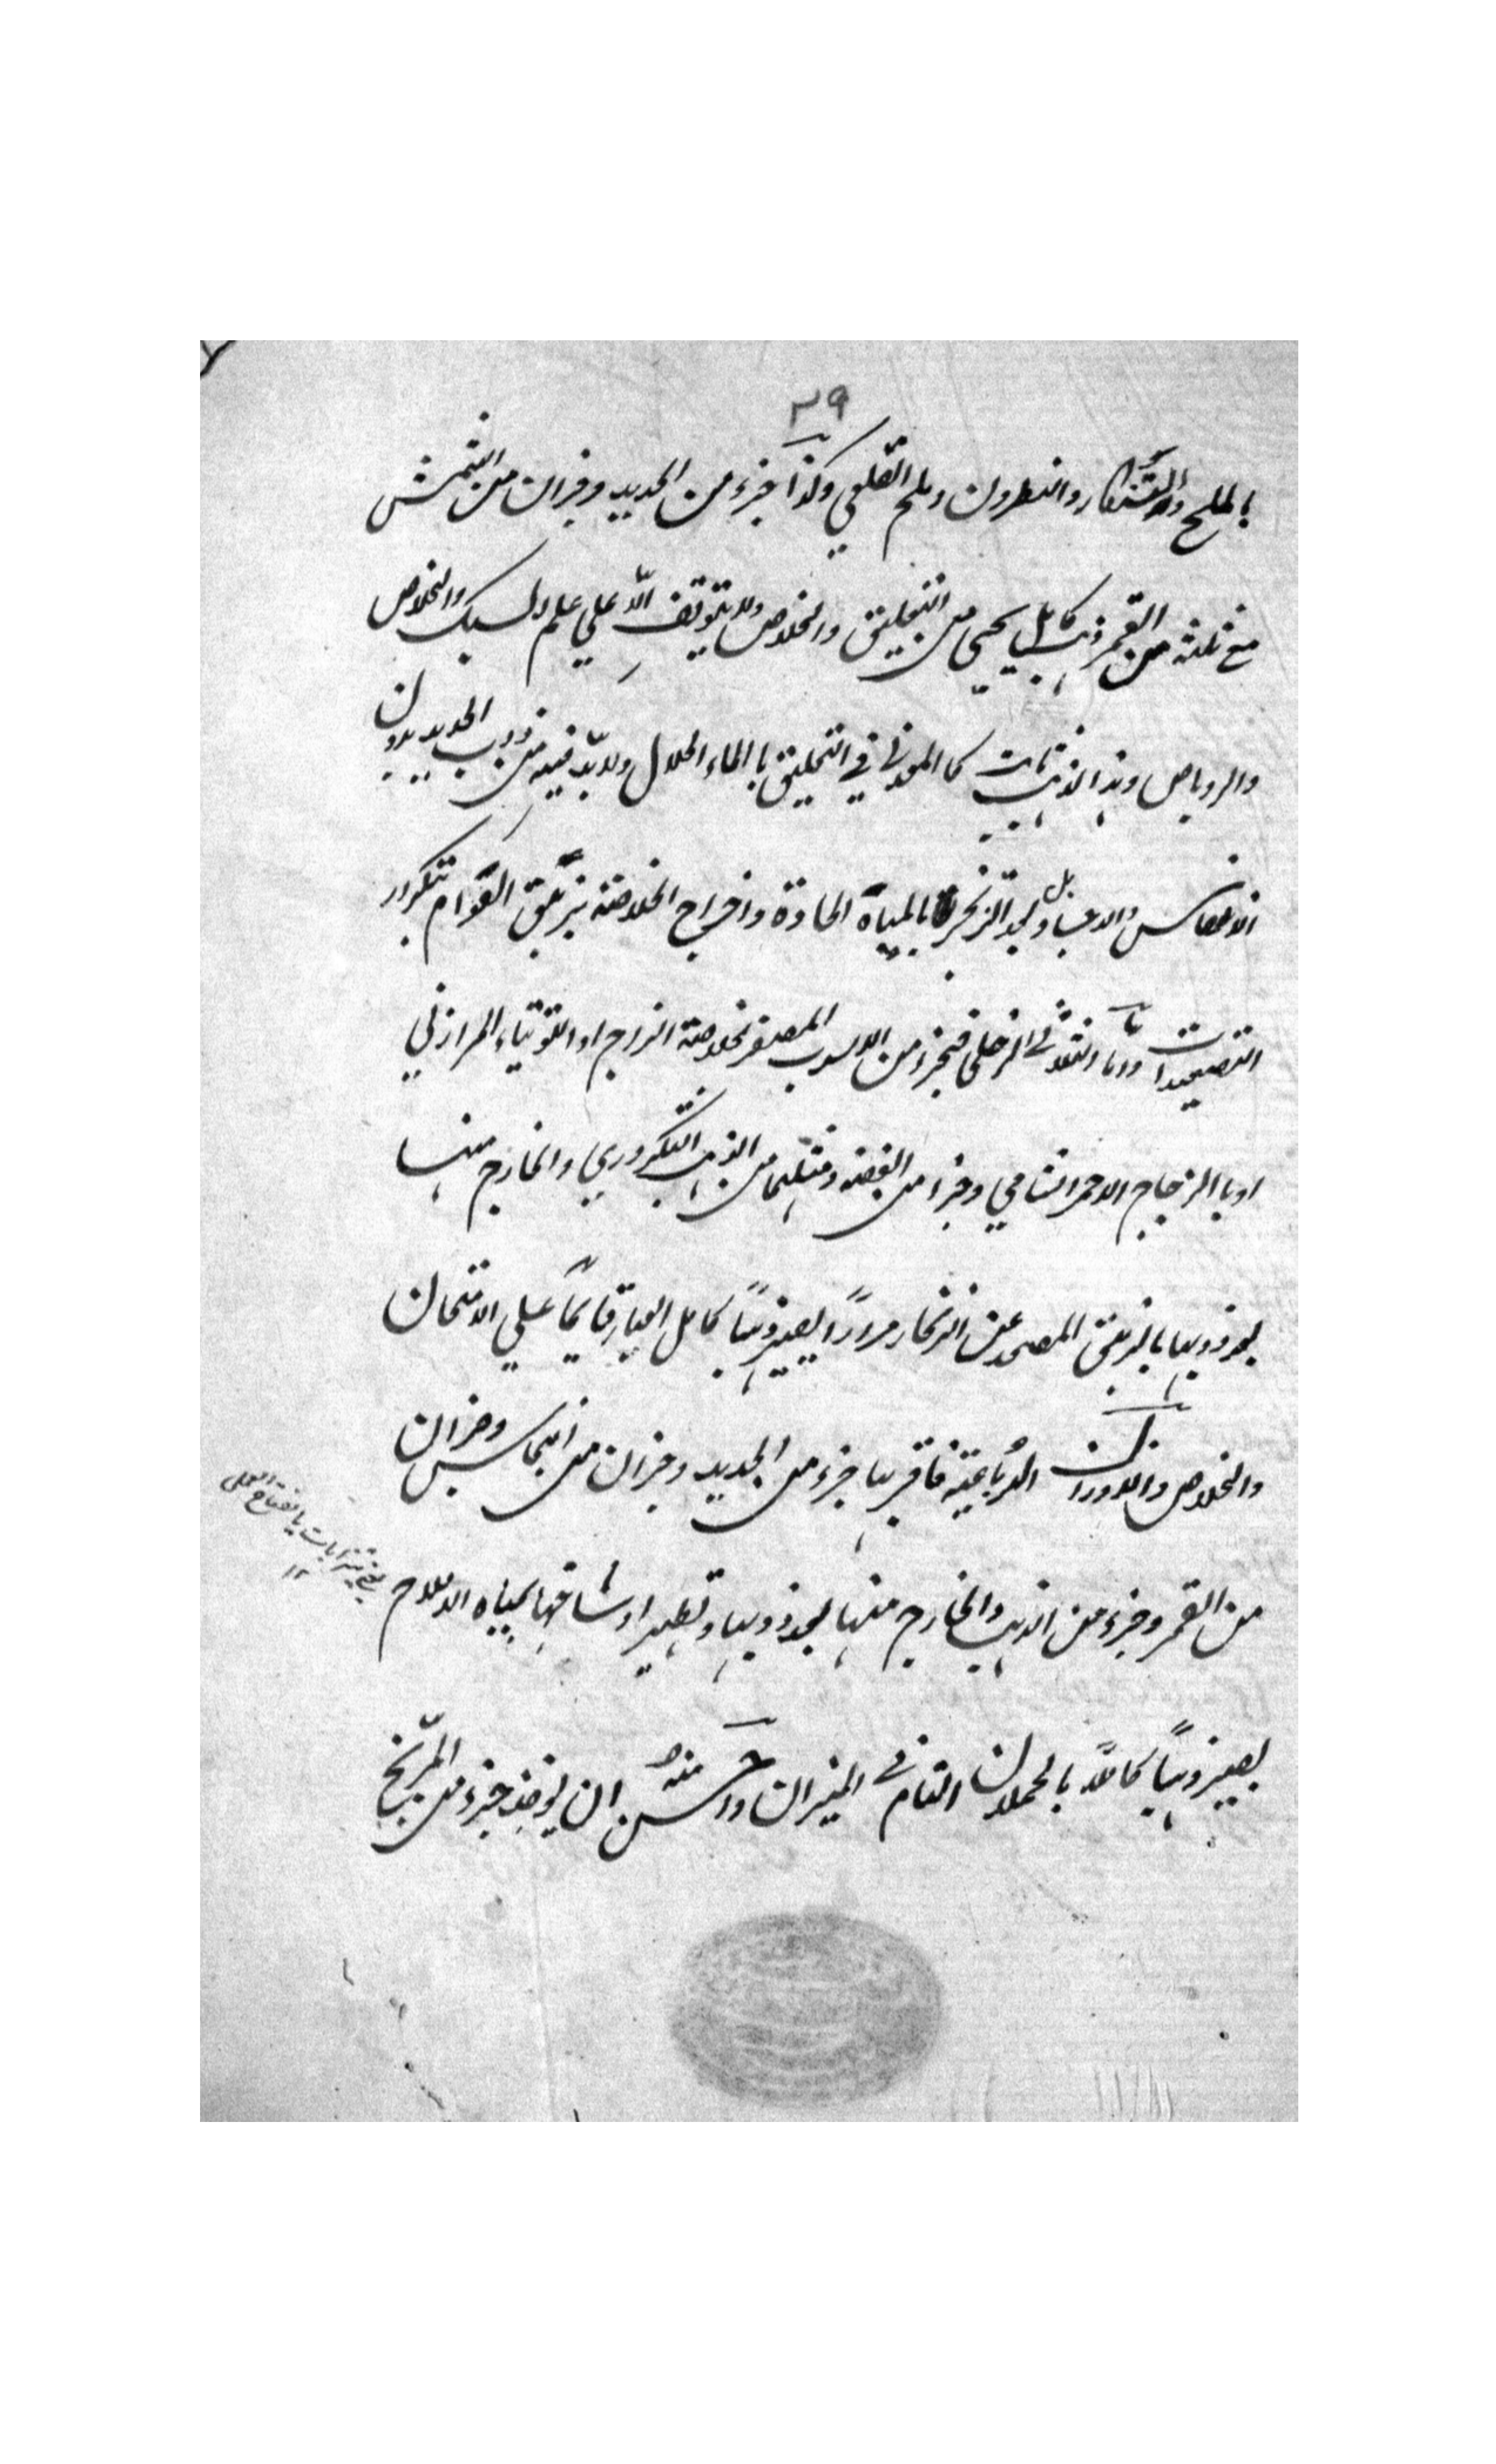 ٣٩
بالملح والتنكار والنطرون وملح القلي وكذا جزء من الحديد وجزان من الشمس
مع ثلثه من القمر ذهب كامل يحمى من التخليق والخلاص ولا يتوقف الّا علي علم السبك والخلاص
والروباص وهذا الذهب ثابت كالمعدني في التحليق باالماء الحلال ولا بدّ فيه من ذوب الحديد بدون
الانعكاس والاعسال بل بعد التزنجر بالمياه الحادة واخراج الخلاصة بزيبق القوام بتكرار
التصعيدات وامّا الثلاثى الزحلى فجزء من الاسرب المصفر بخلاصة الزاج او التوتياء المرازبي
اوبا الزجاج الاحمر الشامي وجزء من الفضه ومثلهما من الذهب التكروري والخارج منها
بعد ذوبها بالزيبق المصعد عن الزنجار مرارًا يصير ذهبًا كامل العيار قايمًا علي الامتحان
والخلاص والاوزان الرُباعية فاقربها جزء من الحديد وجزان من النحاس وجزان
من القمر وجزء من الذهب والخارج منها بعد ذوبها وتطهير اوساخها بمياه الاملاح
يصير ذهبًا كاملًا بالحملان التام في الميزان واحسن منهُ ان يوخذ جزء من المرّيخ